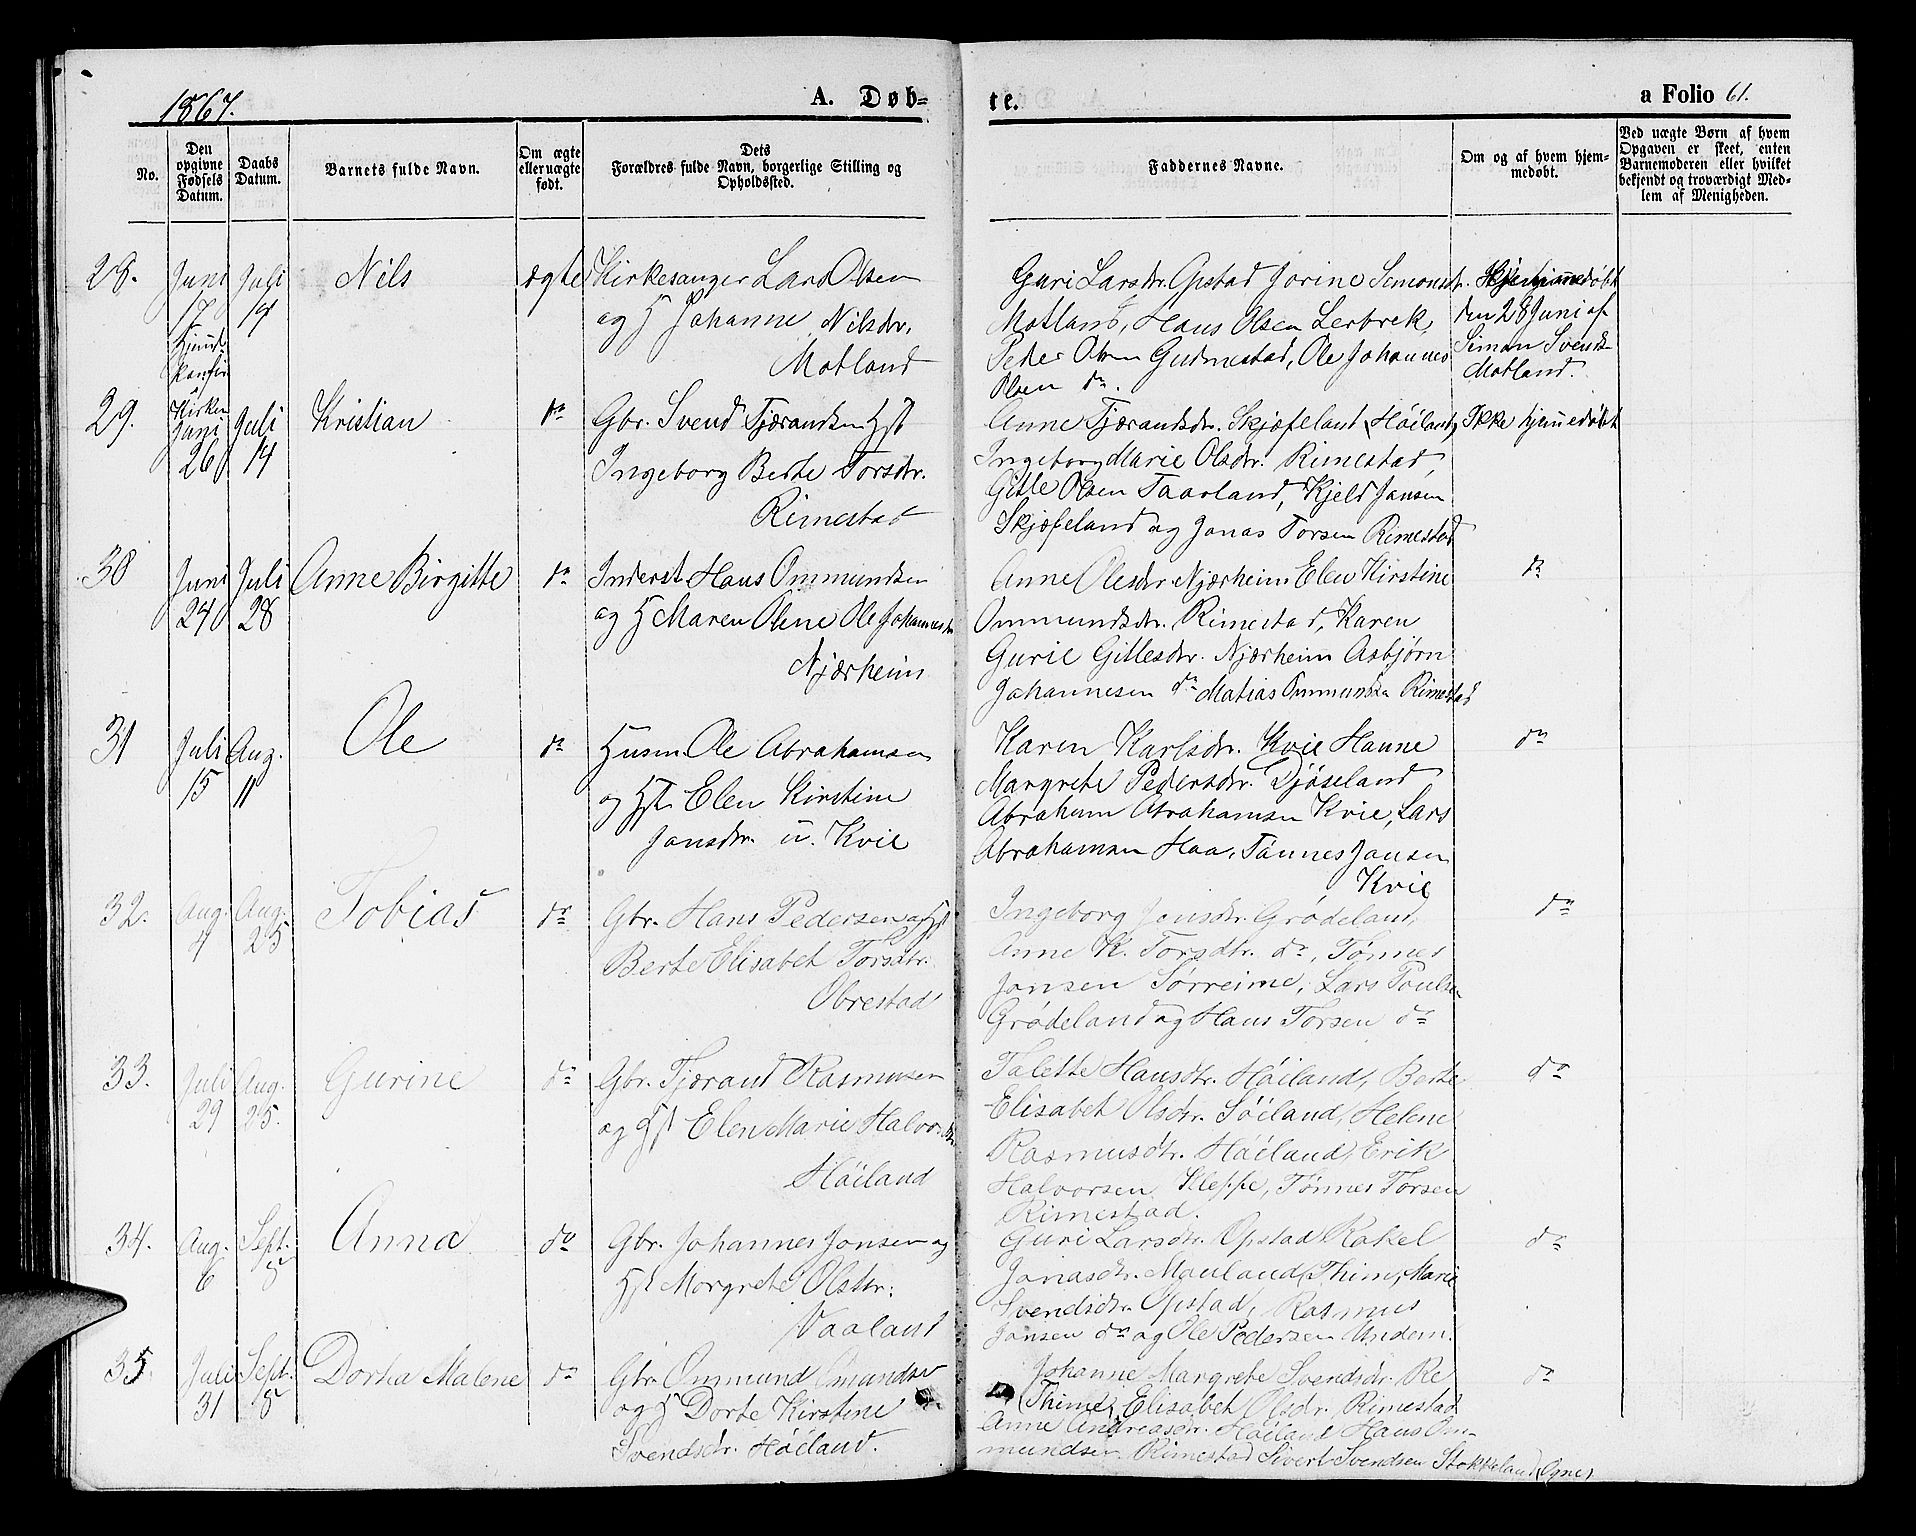 1867.
A. Døb-
te.
a Folio 61.
No.
Den opgivne Fødsels Datum.
Daabs Datum.
Barnets fulde Navn.
Om ægte eller uægte født.
Dets Forældres fulde Navn, borgerlige Stilling og Opholdssted.
Faddernes Navne.
Om og af hvem hjemmedøbt.
Ved uægte Børn af hvem Opgaven er skeet, enten Barnemoderen eller hvilket bekjendt og troværdigt Medlem af Menigheden.
28. Juni 17 Juli 14 Nils ægte
Kirkesanger Lars Olsen
og H Johanne Nilsdr.
Motland
Guri Larsdr. Opstad Jorine Simonsdr.
Motland, Hans Olsen Lerbrek,
Peder Olsen Gudmestad, Ole Johannes
Olsen do.
Hjemmedøbt
den 28 Juni af
Simon Svends.
Motland.
Kirken
29. Juni 26 Juli 14 Kristian do
Gbr. Svend Tjærandsen Hst
Ingeborg Berte Torsdr.
Rimestad
Anne Tjærandsdr. Skjæfeland, Høiland,
Ingeborg Marie Olsdr. Rimestad,
Gitle Olsen Taarland, Kjeld Jansen
Skjæfeland og Jonas Torsen Rimestad
Ikke hjemmedøbt
30 Juni 24 Juli 28 Anne Birgitte do
Inderst Hans Ommundsen
og H Maren Olene Ole Johannesdr
Njærheim
Anne Olesdr. Njærheim Elen Kirstine
Ommundsdr. Rimestad, Karen
Gurie Gitlesdr. Njærheim Asbjørn
Johannesen do Matias Ommundsen Rimestad
do
31 Juli 15 Aug. 11 Ole do
Husm. Ole Abrahamsen
og Hst. Elen Kirstine
Jansdr. u. Kvie
Karen Karlsdr. Kvie Hanne
Margrete Pedersdr. Djøseland
Abraham Abrahamsen Kvie, Lars
Abrahamsen Haa, Tønnes Jansen
Kvie
do
32. Aug. 4 Aug. 25 Tobias do
Gbr. Hans Pedersen og Hst
Berte Elisabet Torsdtr.
Obrestad
Ingeborg Jensdr. Grødeland,
Anne K. Torsdtr. do, Tønnes
Jansen Sørreime, Lars Poulsen
Grødeland og Hans Torsen do
do
33. Juli 29 Aug. 25. Gurine do
Gbr. Tjærand Rasmusen
og Hst Elen Marie Halvorsdtr
Høiland
Talette Hansdtr. Høiland, Berte
Elisabet Olsdtr. Søiland, Helene
Rasmusdtr. Høiland, Erik
Halvorsen Kleppe, Tønnes Torsen
Rimestad.
do
34. Aug. 6 Sept. 8 Anna do
Gbr. Johannes Jonsen og
Hst Morgrete Olsdtr.
Vaaland
Guri Larsdtr. Opstad Rakel
Jonasdtr. Mauland, Thime, Marie
Svendsdtr. Opstad, Rasmus
Jansen do og Ole Pedersen Undem.
do
35. Juli 31 Sept. 8 Dortea Malene do
Gbr. Ommund Omundsen
og H Dorte Kirstine
Svendsdr. Høiland.
Johanne Margrete Svendsdr. Re
(Thime) Elisabet Olsdr. Rimestad
Anne Andreasdr. Høiland Hans Om-
mundsen Rimestad Sivert Svendsen Stokkeland, Ognes
do